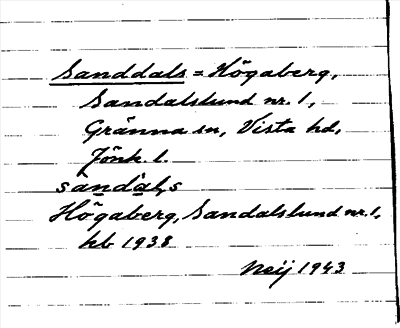 Sanddals = Högaberg,
Sandalslund nr. 1,
Gränna sn, Vista hd,
Jönk. l.
sàndàl,s
Högaberg, Sandalslund nr. 1,
hb 1938
Neij 1943